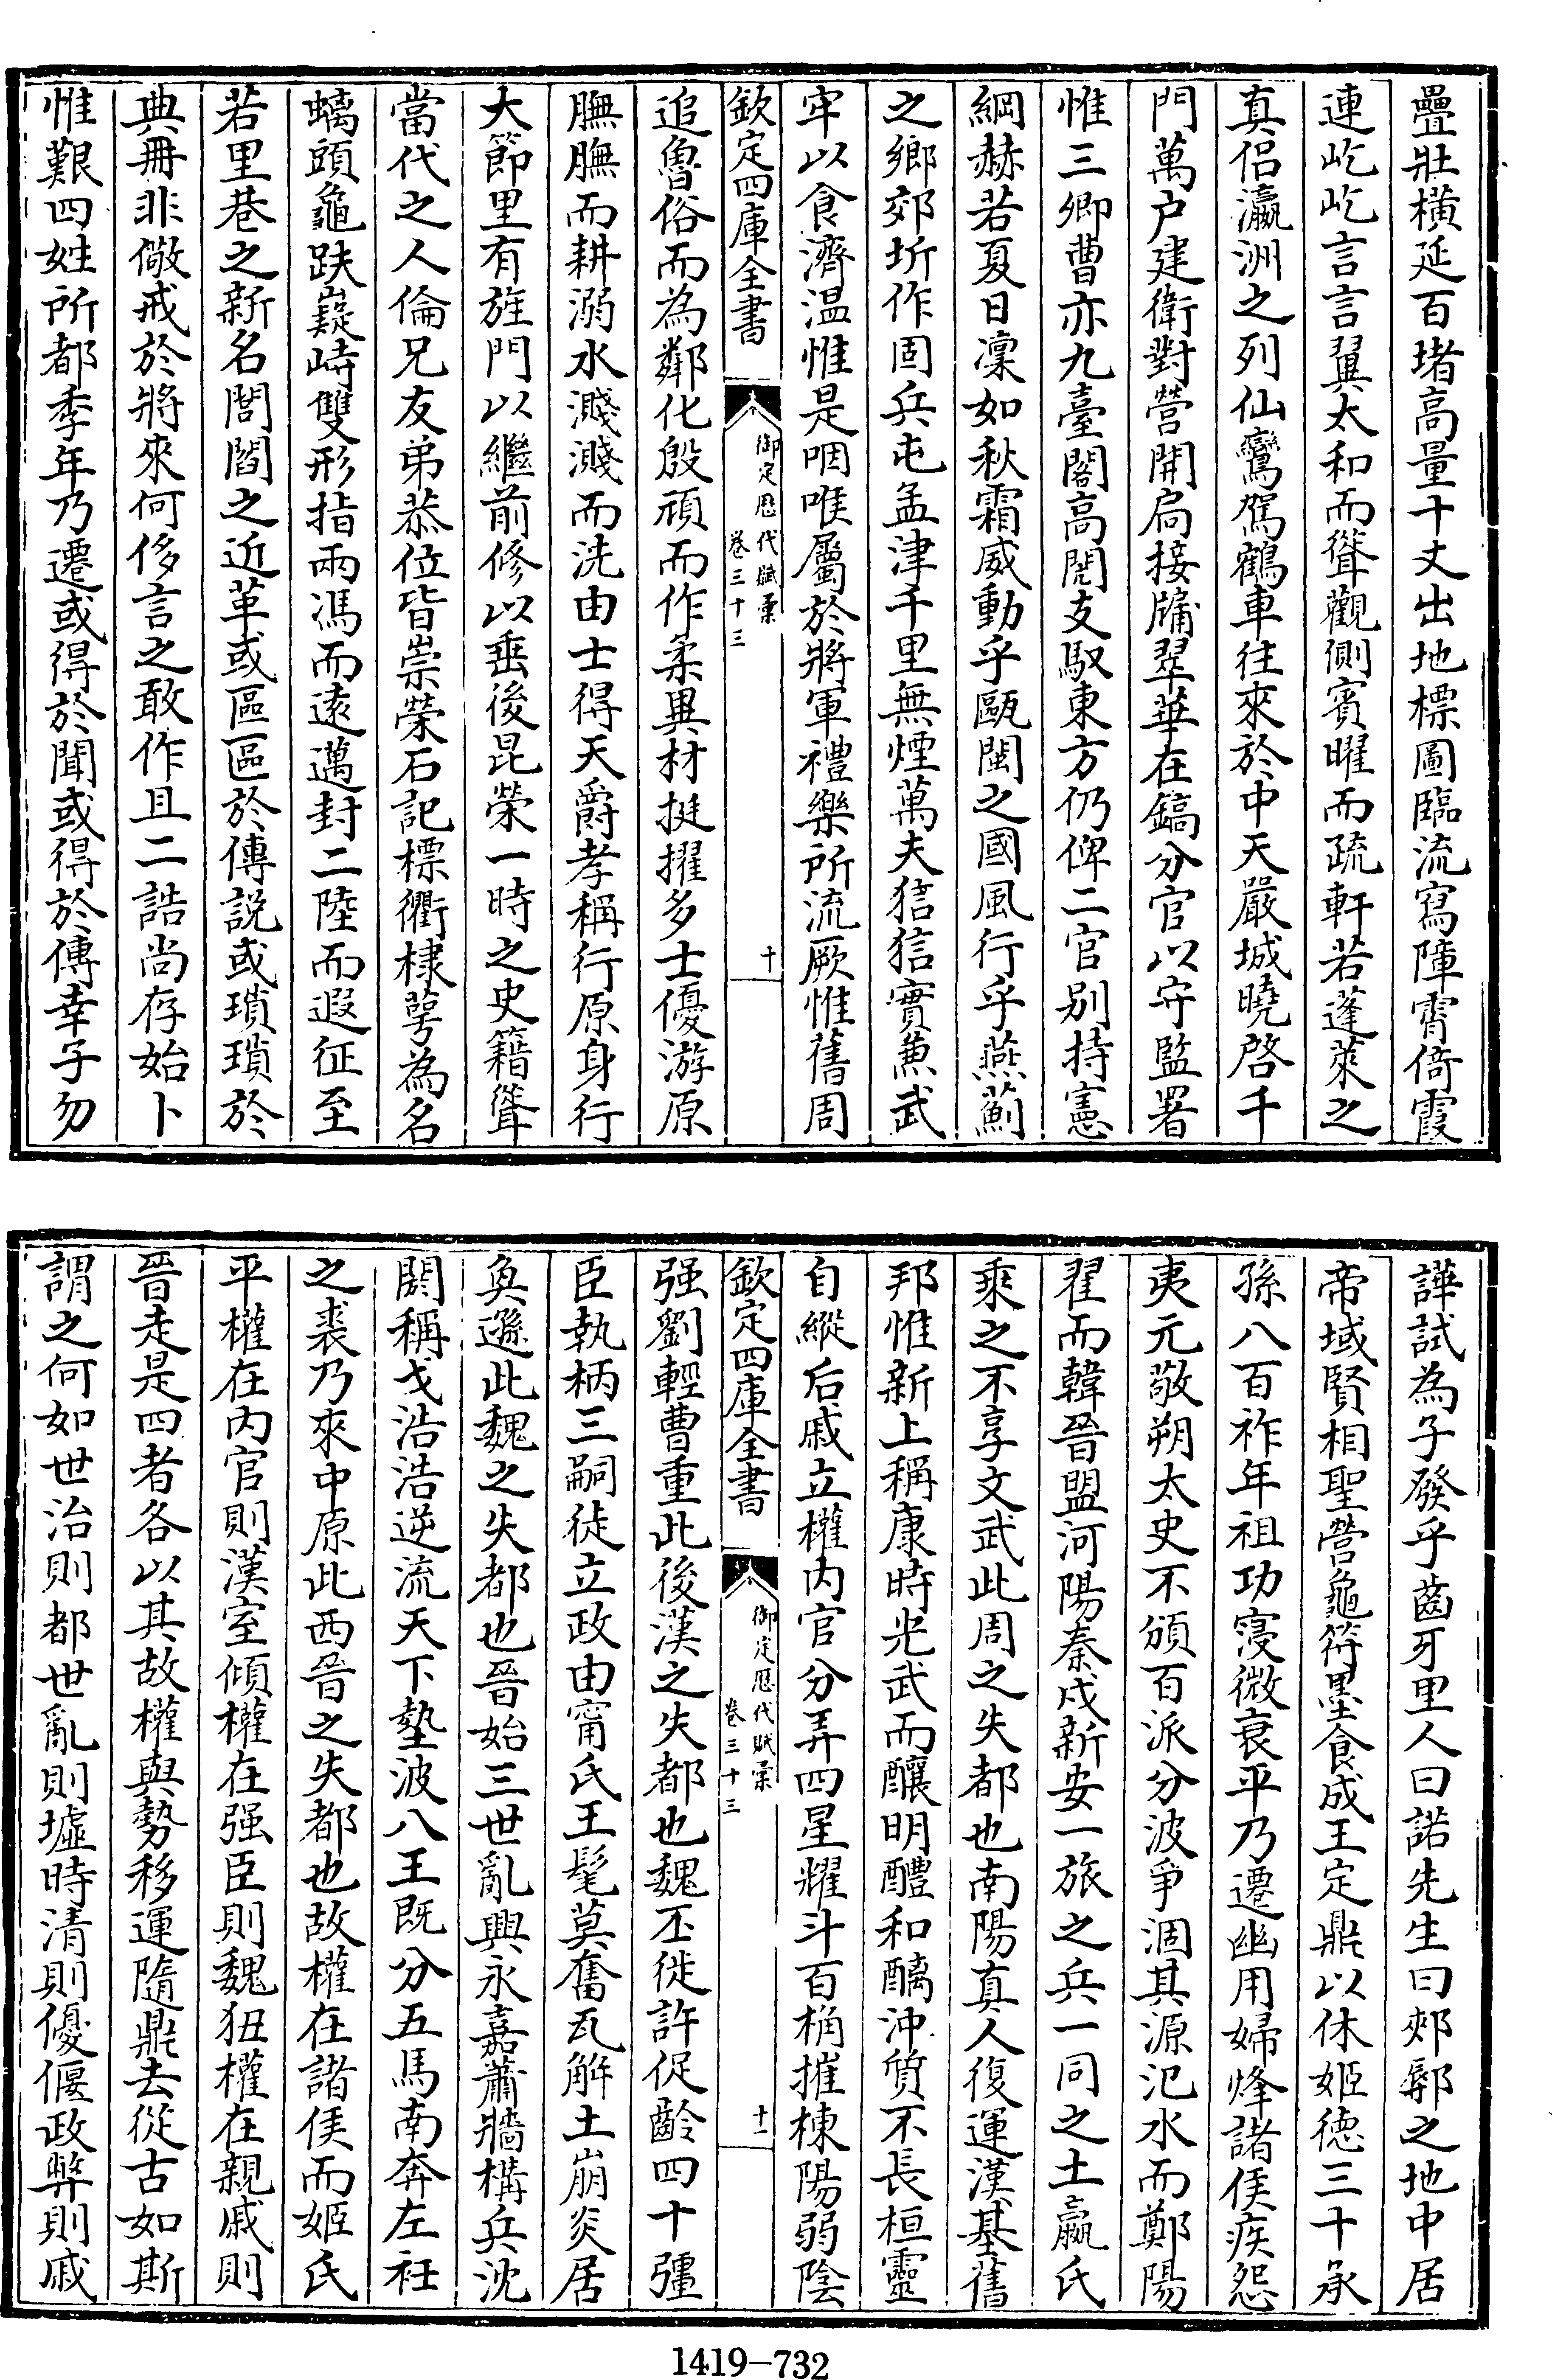 疊壯橫延百堵高量十丈出地標圖臨流寫障霄倚霞
連屹屹言言翼太和而聳觀側賓曜而疏軒若蓬萊之
真侣瀛洲之列仙鸞駕鶴車往來於中天嚴城曉啓千
門萬户建衛對營開扃接牖翠華在鎬分官以守監署
惟三卿曹亦九臺閣高閌支馭東方仍俾二官别持憲
綱赫若夏日凜如秋霜威動乎甌閩之國風行乎燕薊
之鄉郊圻作固兵屯孟津千里無煙萬夫狺狺實惫武
牢以食濟温惟是咽喉屬於將軍禮樂所流厥惟舊周
欽定四庫全書
御定歴代賦彙
卷三十三
十
追魯俗而為鄰化殷頑而作柔異材挺擢多士優游原
膴膴而耕溺水濺濺而洗由士得天爵孝稱行原身行
大節里有旌門以繼前修以垂後昆榮一時之史籍聳
當代之人倫兄友弟恭位皆崇榮石記標衢棣蕚為名
螭頭龜趺嶷崎雙形指兩馮而遠邁封二陸而遐征至
若里巷之新名閭閻之近革或區區於傳説或瑣瑣於
典冊非儆戒於將來何侈言之敢作且二誥尚存始卜
惟艱四姓所都季年乃遷或得於聞或得於傳幸子勿
譁試為子發乎齒牙里人曰諾先生曰郟鄏之地中居
帝域賢相聖營龜符墨食成王定鼎以休姬德三十承
孫八百祚年祖功寖微衰平乃遷幽用婦烽諸侯疾怨
夷元敬朔太史不頒百派分波爭涸其源氾水而鄭陽
翟而韓晉盟河陽秦戍新安一旅之兵一同之土嬴氏
乘之不享文武此周之失都也南陽真人復運漢基舊
邦惟新上稱康時光武而釀明醴和醨沖質不長桓靈
自縱后戚立權内官分弄四星耀斗百桷摧棟陽弱陰
欽定四庫全書
御定歴代賦彙
卷三十三
十一
强劉輕曹重此後漢之失都也魏丕徙許促齡四十彊
臣執柄三嗣徒立政由甯氏王髦莫奮瓦解土崩炎居
奐遜此魏之失都也晉始三世亂興永嘉蕭牆構兵沈
閼稱戈浩浩逆流天下墊波八王既分五馬南奔左衽
之裘乃來中原此西晉之失都也故權在諸侯而姬氏
平權在内官則漢室傾權在强臣則魏狃權在親戚則
晉走是四者各以其故權與勢移運隨鼎去從古如斯
謂之何如世治則都世亂則墟時清則優偃政弊則戚
1419—732